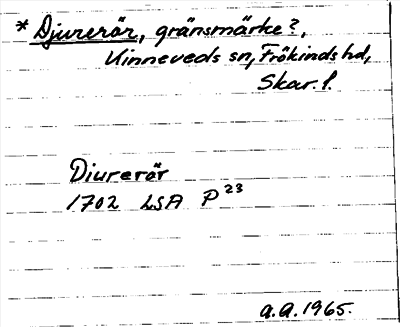 * Djurerör, gränsmärke?,
Kinneveds sn, Frökinds hd,
Skar. l.
Diurerör
1702 LSA P²³
a.a. 1965.